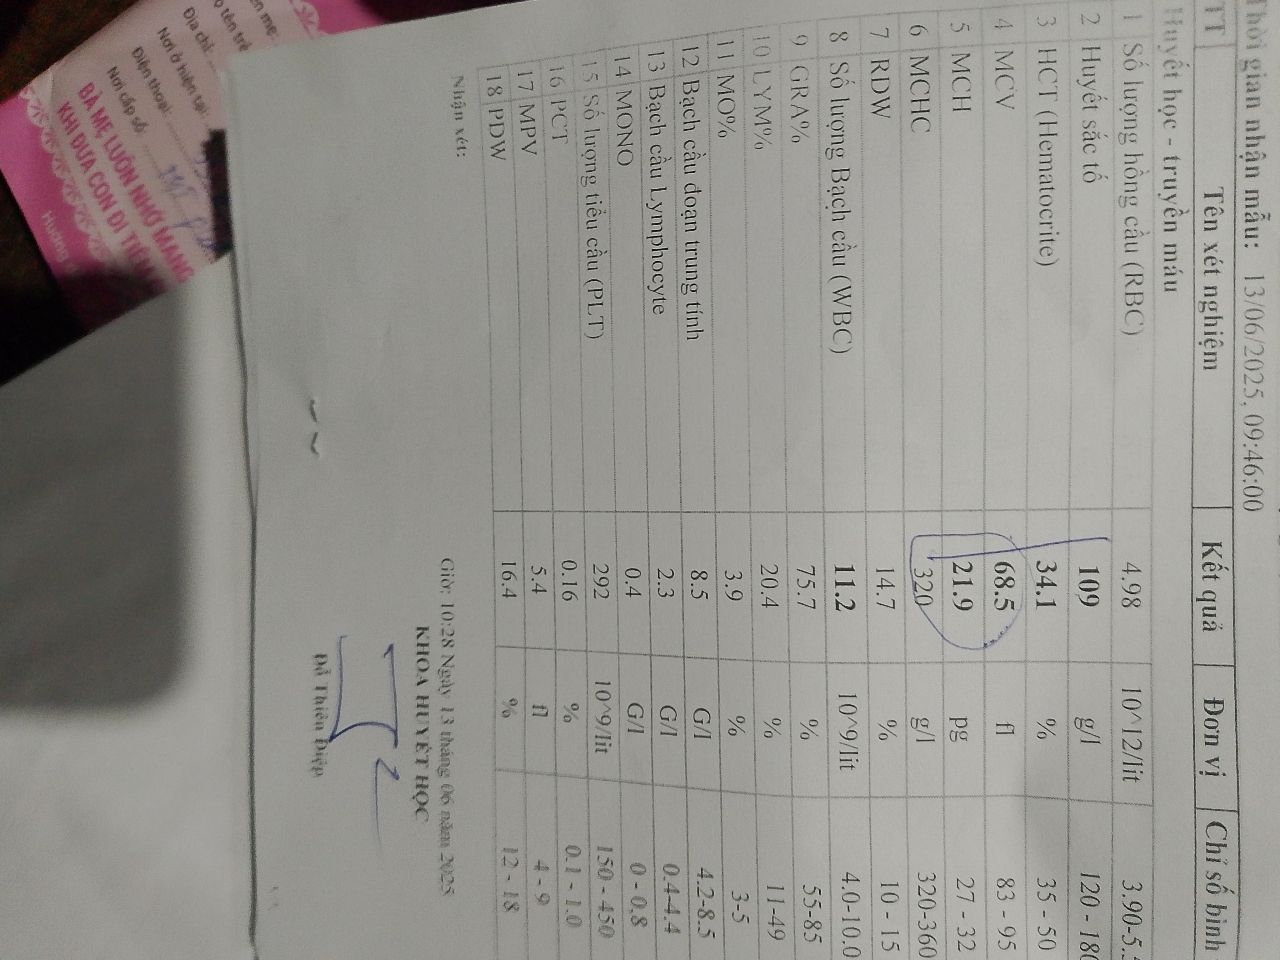 Thời gian nhận mẫu: 13/06/2025, 09:46:00
TT Tên xét nghiệm Kết quả Đơn vị Chỉ số bình
Huyết học - truyền máu
1 Số lượng hồng cầu (RBC) 4.98 10^12/lit 3.90-5.
2 Huyết sắc tố 109 g/l 120 - 180
3 HCT (Hematocrite) 34.1 % 35 - 50
4 MCV 68.5 fl 83 - 95
5 MCH 21.9 pg 27 - 32
6 MCHC 320 g/l 320-360
7 RDW 14.7 % 10 - 15
8 Số lượng Bạch cầu (WBC) 11.2 10^9/lit 4.0-10.0
9 GRA% 75.7 % 55-85
10 LYM% 20.4 % 11-49
11 MO% 3.9 % 3-5
12 Bạch cầu đoạn trung tính 8.5 G/l 4.2-8.5
13 Bạch cầu Lymphocyte 2.3 G/l 0.4-4.4
14 MONO 0.4 G/l 0 - 0.8
15 Số lượng tiểu cầu (PLT) 292 10^9/lit 150 - 450
16 PCT 0.16 % 0.1 - 1.0
17 MPV 5.4 fl 4 - 9
18 PDW 16.4 % 12 - 18
Nhận xét:
Giờ: 10:28 Ngày 13 tháng 06 năm 2025
KHOA HUYẾT HỌC
Đỗ Thiên Điệp
tên trẻ
Địa chỉ:
Nơi ở hiện tại:
Điện thoại:
Nơi cấp sổ
BÀ MẸ LUÔN NHỚ MANG
KHI ĐƯA CON ĐI TIÊM